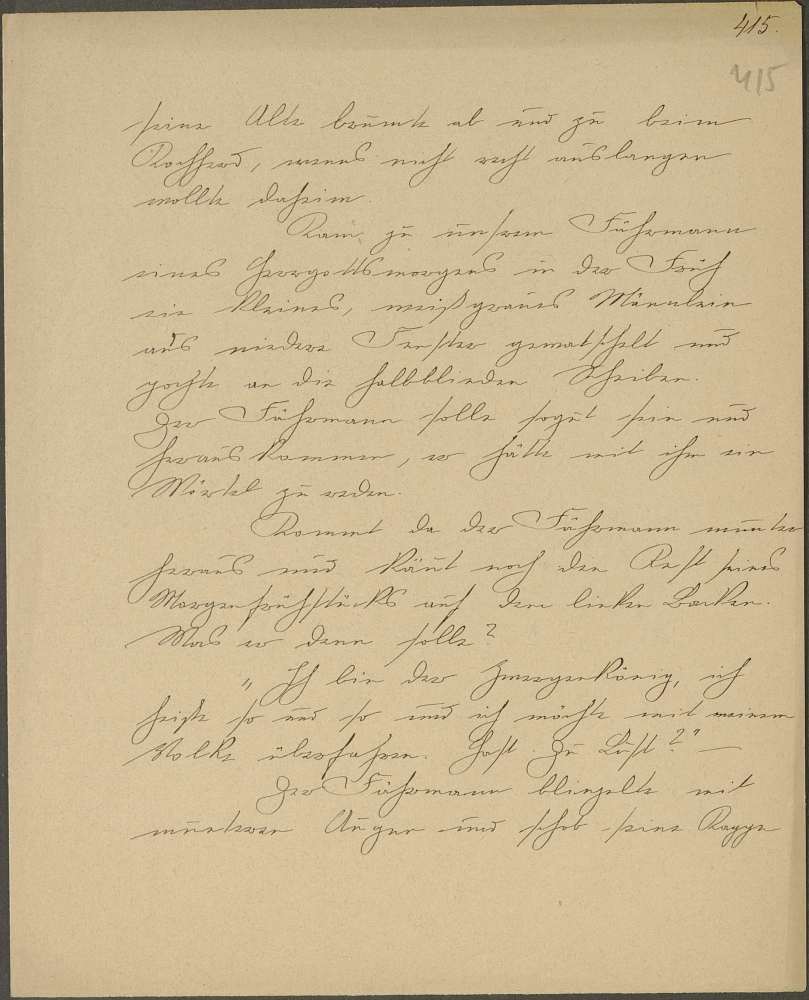 415.
415
seine Alte brumte ab und zu beim
Kochherd, wenns nicht recht auslangen
wollte daheim.
Kam zu unsrem Fährmann
eines Herrgottsmorgens in der Früh
ein kleines, weißgraues Männlein
aus niedere Fenster gewatschelt und
pochte an die halbblinden Scheiben.
Der Fährmann solle sogut sein und
heraus kommen, er hätte mit ihm ein
Wörtel zu reden.
Kommt da der Fährmann munter
heraus und käut noch den Rest seines
Morgenfrühstücks auf dem linken Backen.
Was er denn solle?
"Ich bin der Zwergenkönig, ich
heiße so und so und ich möchte mit meinem
Volke überfahren. Hast Du Lust?" —
Der Fährmann blinzelte mit
munteren Augen und schob seine Kappe